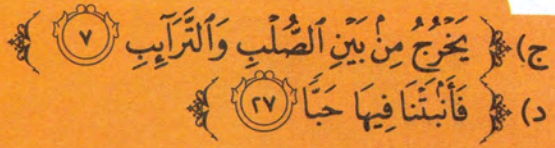 ج) ﴿ يَخْرُجُ مِنۢ بَيْنِ ٱلصُّلْبِ وَٱلتَّرَآئِبِ ٧ ﴾
د) ﴿ فَأَنۢبَتْنَا فِيهَا حَبًّا ٢٧ ﴾